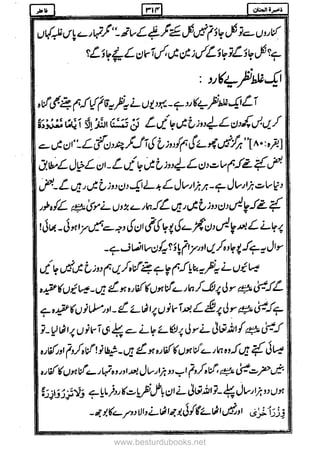 فاطر ۳۱۴ ذخیرۃ الجنان
کناروں سے تو نکل جاؤ تم نہیں نکل سکتے مگر غلبے کے ساتھ۔" مگر تمہارے پاس غلبہ کہاں
ہے؟ نکل جاؤ گے تو جاؤ گے کس زمین میں، کس آسمان کے نیچے جاؤ گے؟
ایک غلط نظریے کا رد :
آگے ایک غلط نظریے کا رد ہے۔ یہودیوں نے یہ نظریہ قائم کیا کہ ہم جتنے بھی گناہ
کریں بس کچھ دن کے لیے دوزخ میں جائیں گے لَنْ تَمَسَّنَا النَّارُ اِلَّآ اَيَّامًا مَّعْدُوْدَةً
[بقرہ: ۸۰] "ہرگز نہیں چھوئے گی ہم کو دوزخ کی آگ مگر چند دن گنتی کے۔" ان میں سے
بعض کہتے تھے کہ ہم سات دن کے لیے دوزخ میں جائیں گے۔ ان کے خیال کے مطابق
دنیا سات ہزار سال ہے۔ ہر ہزار سال کے بدلے ایک دن دوزخ میں رہیں گے۔ بعض
کہتے تھے کہ چالیس دن دوزخ میں رہیں گے کہ ہمارے بڑوں نے موسیٰ علیہ السلام کے کوہ طور
پر جانے کے بعد چالیس دن کے بچھڑے کی پوجا کی تھی ان کی وجہ سے ہمیں سزا ہوئی۔ بھائی!
سوال یہ ہے کہ پوجا وہ کریں اور سزا تم پاؤ؟ یہ کون سا انصاف ہے۔
عیسائیوں نے یہ نظریہ بنایا کہ ہم گناہ کریں جتنے چاہے ہم دوزخ میں نہیں جائیں
گے کہ عیسیٰ علیہ السلام سولی پر لٹک کر ہمارے گناہوں کا کفارہ ہو گئے ہیں۔ عیسائیوں کا عقیدہ
ہے کہ عیسیٰ علیہ السلام سولی پر لٹکنے کے بعد آسمانوں پر اٹھائے گئے۔ اور مسلمانوں کا عقیدہ ہے
کہ عیسیٰ علیہ السلام کو اللہ تعالیٰ نے سولی پر لٹکائے جانے سے پہلے ہی آسمانوں پر اٹھا لیا۔ تو
عیسائی کہتے ہیں کہ وہ ہمارے گناہوں کا کفارہ ہو گئے ہیں۔ شیطانو! گناہ کرو تم اور کفارہ
بنیں حضرت عیسیٰ علیہ السلام، گناہ کرو تم اب دو ہزار سال بعد اور وہ تمہارے گناہوں کا کفارہ
ہوں دو ہزار سال پہلے۔ تو اللہ تعالیٰ نے ان باطل نظریات کا رد فرمایا ہے وَلَا تَزِرُ وَازِرَةٌ
وِّزْرَ اُخْرٰی اور نہیں اٹھائے گا کوئی بوجھ اٹھانے والا دوسرے کا بوجھ۔
www.besturdubooks.net